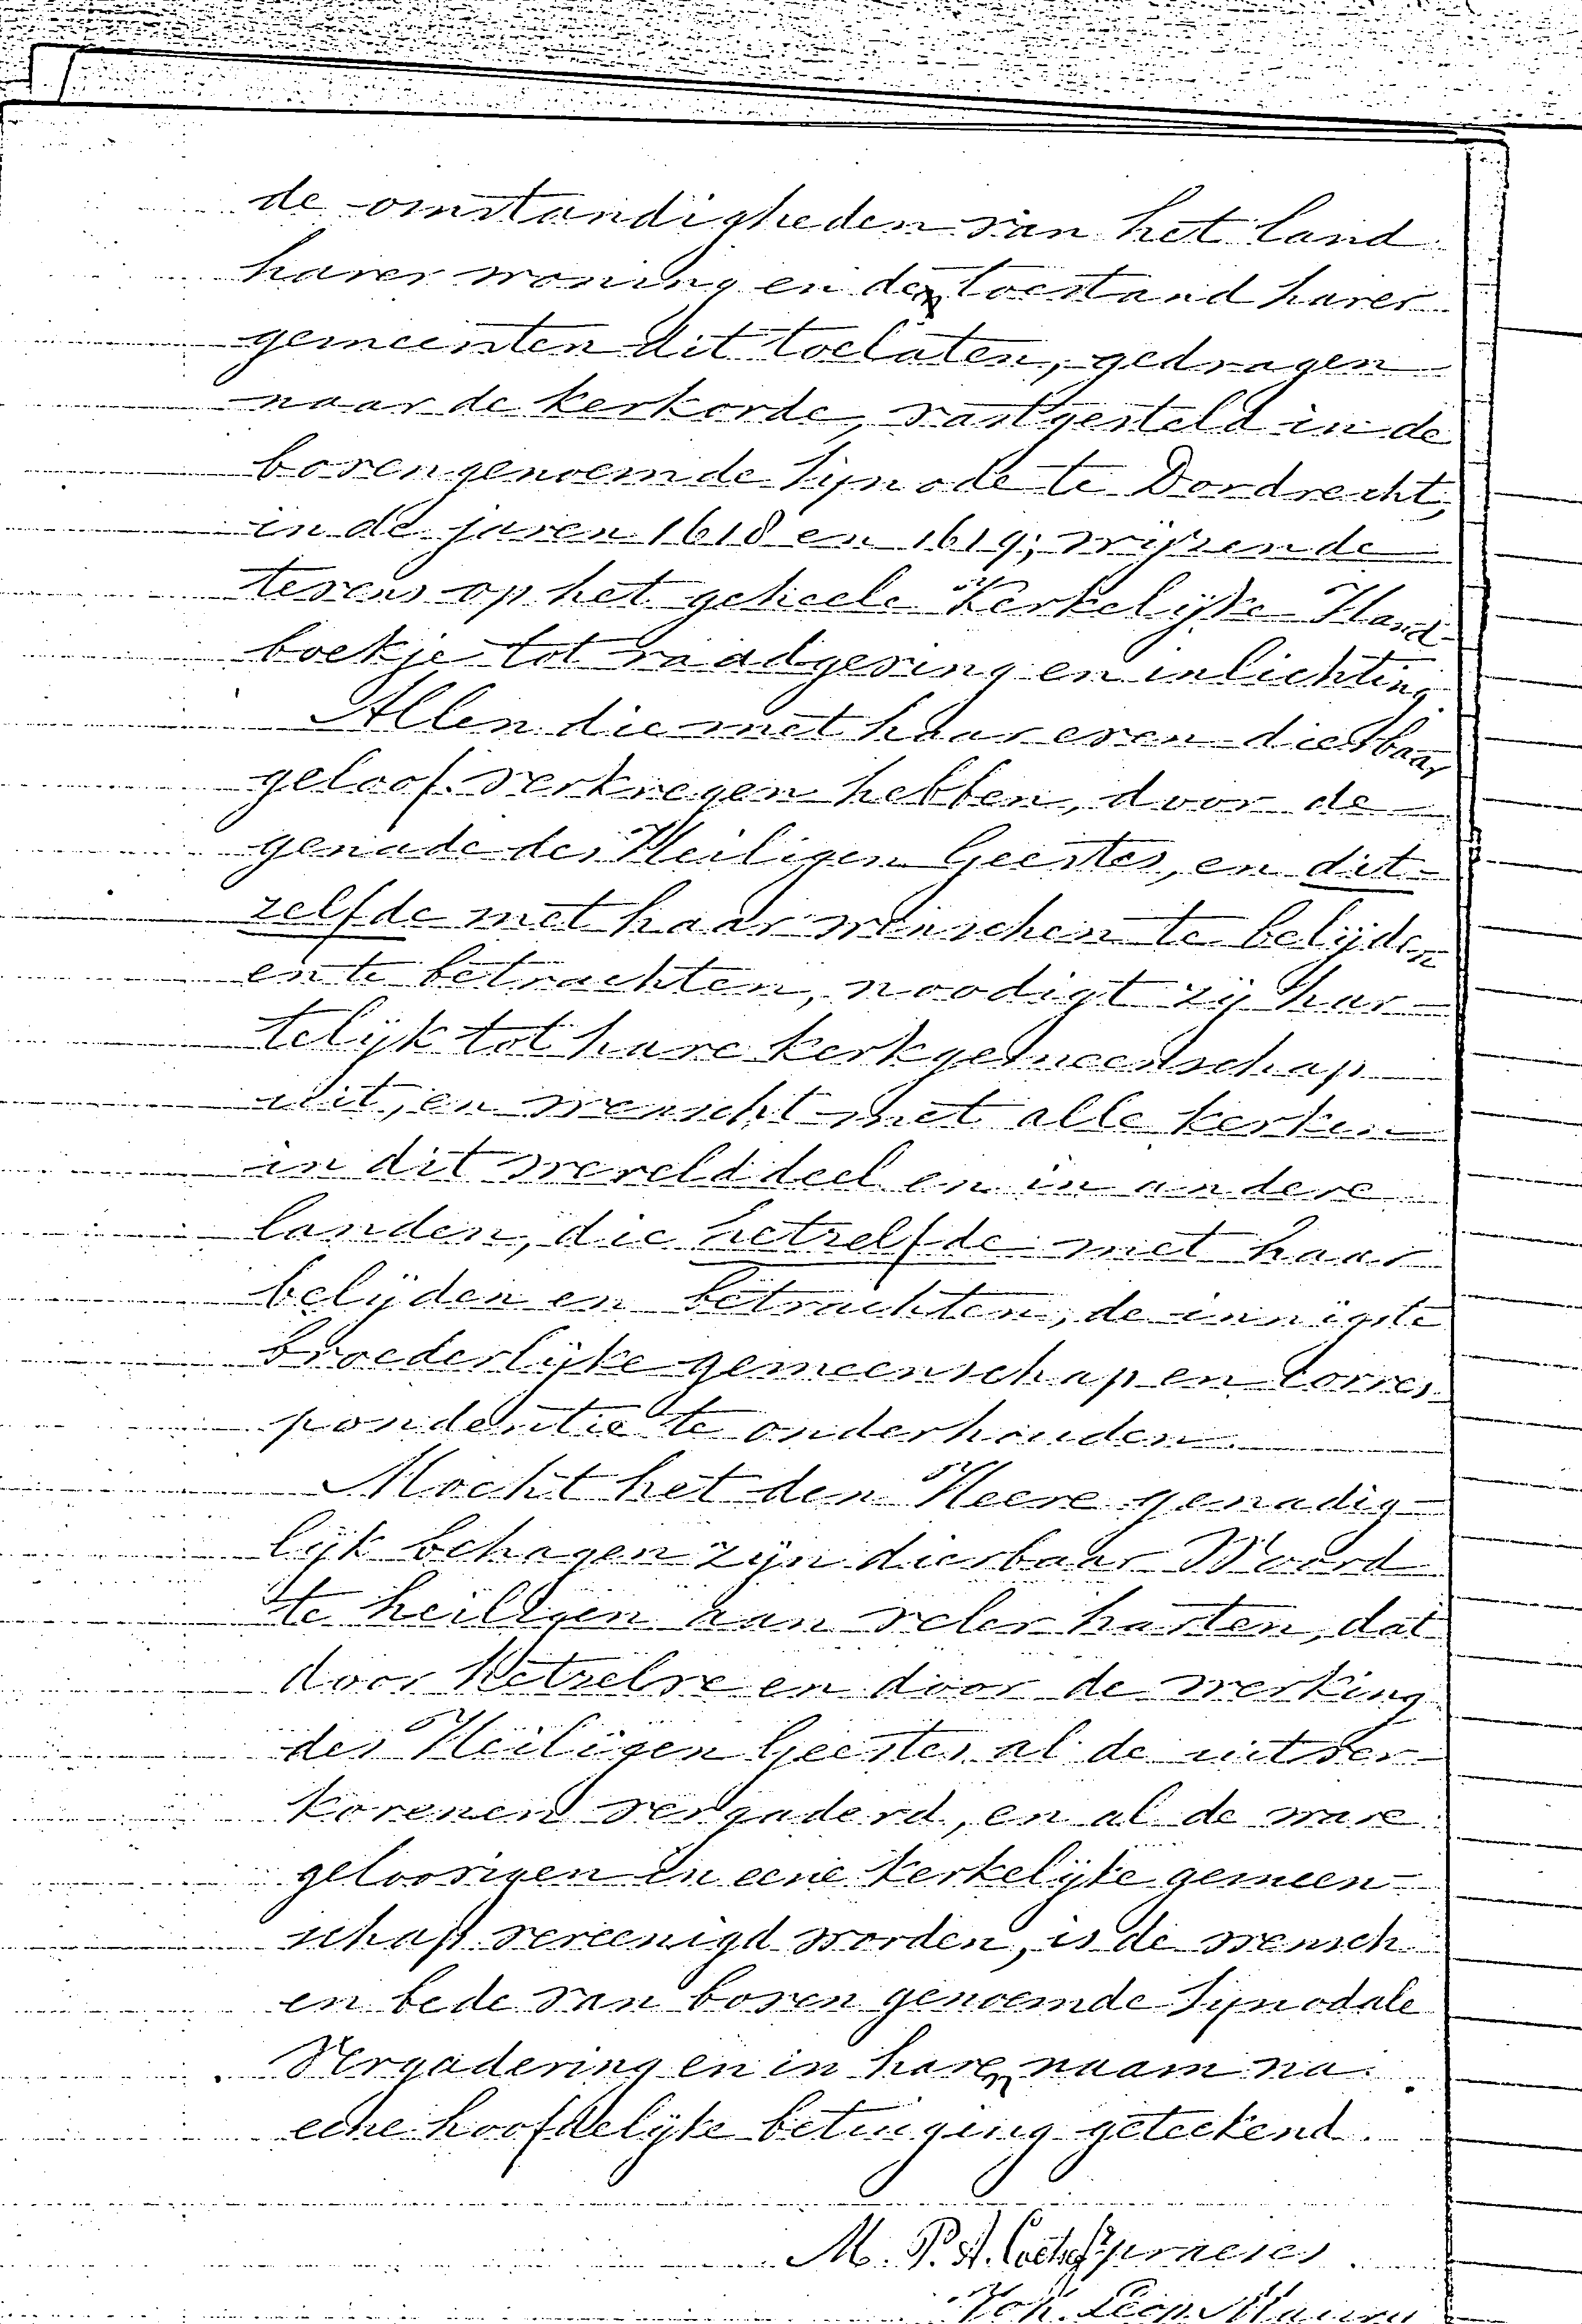 de omstandigheden van het land
harer woning en den toestand harer
gemeenten dit toelaten, gedragen
naar de kerkorde, vastgesteld in de
bovengenoemde Synode te Dordrecht,
in de jaren 1618 en 1619; wijzende
tevens op het geheele Kerkelijke Hand-
boekje tot raadgeving en inlichting.
Allen die met haar even dierbaar
geloof verkregen hebben, door de
genade des Heiligen Geestes, en dit-
zelfde met haar wenschen te belijden
en te betrachten, noodigt zij har-
telijk tot hare kerkgemeenschap
uit, en wenscht met alle kerken
in dit werelddeel en in andere
landen, die hetzelfde met haar
belijden en betrachten, de innigste
broederlijke gemeenschap en corres-
pondentie te onderhouden.
Mocht het den Heere genadig-
lijk behagen zijn dierbaar Woord
te heiligen aan veler harten, dat
door hetzelve en door de werking
des Heiligen Geestes al de uitver-
korenen vergaderd, en al de ware
geloovigen in eene kerkelijke gemeen-
schap vereenigd worden, is de wensch
en bede van boven genoemde Synodale
Vergadering en in haren naam na
eene hoofdelijke betuiging geteekend.
M. P. A. Coetsee praeses
Joh. Leop. Maury